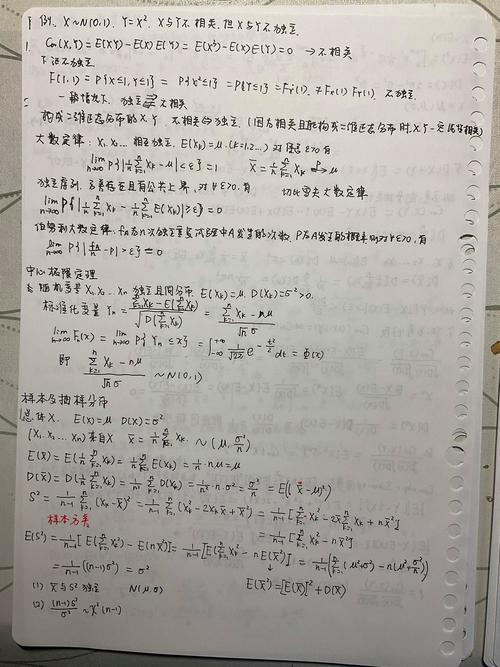 例. X~N(0,1). Y=X². X与Y不相关. 但X与Y不独立.
Cov(X,Y)=E(XY)-E(X)E(Y)=E(X³)-E(X)E(Y)=0 → 不相关
下证不独立
F(1,1)=P{X≤1,Y≤1}=P{X²≤1}=P{Y≤1}=F_Y(1).≠F_X(1)F_Y(1). 不独立
一般情况下. 独立⇌不相关
构成二维正态分布的X,Y. 不相关⇔独立.
大数定律: X₁,X₂... 相互独立. E(X_k)=μ.(k=1,2...) 对任意ε>0.有
lim n→∞ P{|1/n Σ_{k=1}^n X_k-μ|<ε}=1 X̄=1/n Σ_{k=1}^n X_k P→ μ
独立序列. 方差存在且有公共上界. 对∀ε>0.有 切比雪夫大数定律
lim n→∞ P{|1/n Σ_{k=1}^n X_k-1/n Σ_{k=1}^n E(X_k)|≥ε}=0
伯努利大数定律: f_A为n次独立重复试验中A发生的次数. P为A发生的概率 则对∀ε>0,有
lim n→∞ P{|f_A/n-P|>ε}=0
中心极限定理
随机变量X₁,X₂...X_n 独立且同分布. E(X_k)=μ. D(X_k)=σ²>0.
标准化变量 Y_n=(Σ_{k=1}^n X_k-E(Σ_{k=1}^n X_k))/√D(Σ_{k=1}^n X_k)=(Σ_{k=1}^n X_k-nμ)/(√n σ)
lim n→∞ F_n(x)=lim n→∞ P{Y_n≤x}=∫_{-∞}^{+∞} 1/√2π e^{-t²/2}dt=Φ(x)
即 (Σ_{k=1}^n X_k-nμ)/(√n σ) ~N(0,1)
样本及抽样分布
总体X. E(X)=μ D(X)=σ²
(X₁,X₂,...X_n)来自X X̄=1/n Σ_{k=1}^n X_k. ~(μ,σ²/n)
E(X̄)=E(1/n Σ_{k=1}^n X_k)=1/n Σ_{k=1}^n E(X_k)=1/n·nμ=μ
D(X̄)=D(1/n Σ_{k=1}^n X_k)=1/n² Σ_{k=1}^n D(X_k)=1/n²·n·σ²=σ²/n=E((X̄-μ)²)
S²=1/(n-1) Σ_{k=1}^n (X_k-X̄)²=1/(n-1) Σ_{k=1}^n (X_k²-2X_kX̄+X̄²)=1/(n-1)[Σ_{k=1}^n X_k²-2X̄Σ_{k=1}^n X_k+nX̄²]
样本方差 =1/(n-1)[Σ_{k=1}^n X_k²-nX̄²]
E(S²)=1/(n-1)[E(Σ_{k=1}^n X_k²)-E(nX̄²)]=1/(n-1)[E(Σ_{k=1}^n X_k²-nE(X̄²)]=1/(n-1)(Σ_{k=1}^n(μ²+σ²)-n(μ²+σ²/n))
=1/(n-1)((n-1)σ²)=σ² E(X̄²)=[E(X̄)]²+D(X̄)
(1) X̄与S²独立 N(μ,σ)
(2) (n-1)S²/σ² ~χ²(n-1)